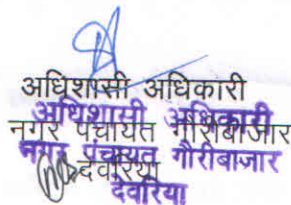 अधिशासी अधिकारी
अधिशासी अधिकारी
नगर पंचायत गौरीबाजार
नगर पंचायत गौरीबाजार
देवरिया
देवरिया